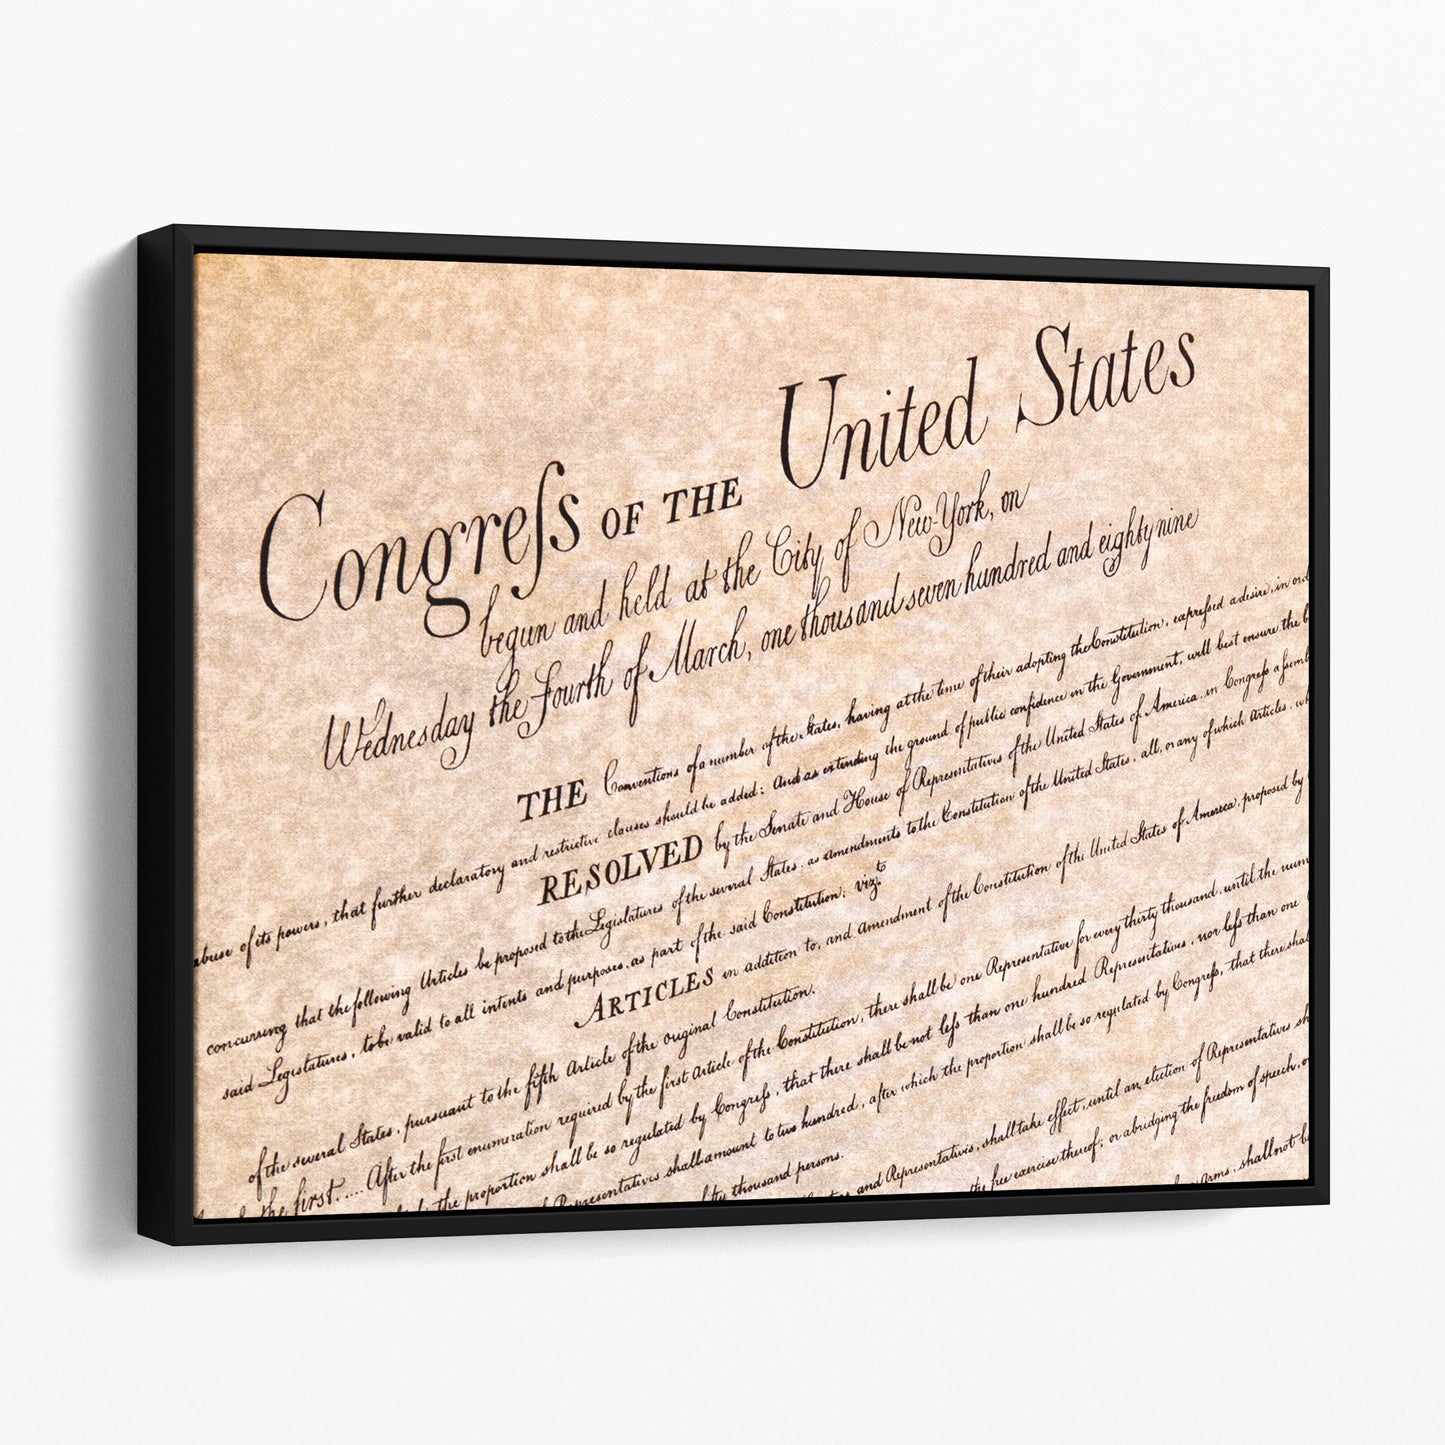 Congreſs OF THE United States
begun and held at the City of New-York, on
Wednesday the Fourth of March, one thousand seven hundred and eighty nine
THE Conventions of a number of the States, having at the time of their adopting the Constitution, expreſsed a desire, in
abuse of its powers, that further declaratory and restrictive clauses should be added: And as extending the ground of public confidence in the Government, will best ensure the
RESOLVED by the Senate and House of Representatives of the United States of America, in Congreſs
concurring that the following Articles be proposed to the Legislatures of the several States, as amendments to the Constitution of the United States, all, or any of which Articles,
said Legislatures, to be valid to all intents and purposes, as part of the said Constitution; vizt.
ARTICLES in addition to, and amendment of the Constitution of the United States of America, proposed by
of the several States, pursuant to the fifth Article of the original Constitution.
the first..... After the first enumeration required by the first Article of the Constitution, there shall be one Representative for every thirty thousand, until the
the proportion shall be so regulated by Congreſs, that there shall be not leſs than one hundred Representatives, nor leſs than one
Representatives shall amount to two hundred, after which the proportion shall be so regulated by Congreſs, that there
thousand persons.
and Representatives, shall take effect, until an election of Representatives
the free exercise thereof; or abridging the freedom of speech,
arms, shall not